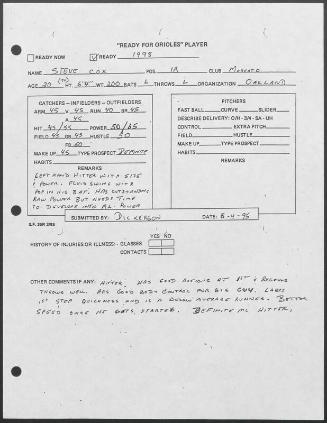 "READY FOR ORIOLES" PLAYER
READY NOW ✓ READY 1998
NAME STEVE COX POS 1B CLUB MODESTO
AGE 20 HT 6'4" WT 200 BATS L THROWS L ORGANIZATION OAKLAND
CATCHERS - INFIELDERS - OUTFIELDERS
ARM 45 V 45 RUN 40 OR 45
X 45
HIT 45/55 POWER 50/65
FIELD 45 OR 45 HUSTLE 50
TO 60
MAKE UP 45 TYPE PROSPECT DEFINITE
HABITS
REMARKS
LEFT HAND HITTER WITH SIZE
& POWER. FLUID SWING WITH
POP IN HIS BAT. HAS OUTSTANDING
RAW POWER BUT NEEDS TIME
TO DEVELOP INTO M.L. POWER
PITCHERS
FAST BALL CURVE SLIDER
DESCRIBE DELIVERY: O/H - 3/4 - SA - UH
CONTROL EXTRA PITCH
FIELD HUSTLE
MAKE UP TYPE PROSPECT
HABITS
REMARKS
SUBMITTED BY: DICKERSON DATE: 8-4-95
YES NO
HISTORY OF INJURIES OR ILLNESS: - GLASSES
CONTACTS
OTHER COMMENTS IF ANY: HITTER, HAS GOOD ACTIONS AT 1ST & RECEIVES
THROWS WELL. HAS GOOD BODY CONTROL FOR BIG GUY. LACKS
1ST STEP QUICKNESS AND IS A BELOW AVERAGE RUNNER. BETTER
SPEED ONCE HE GETS STARTED. DEFINITE ML HITTER.